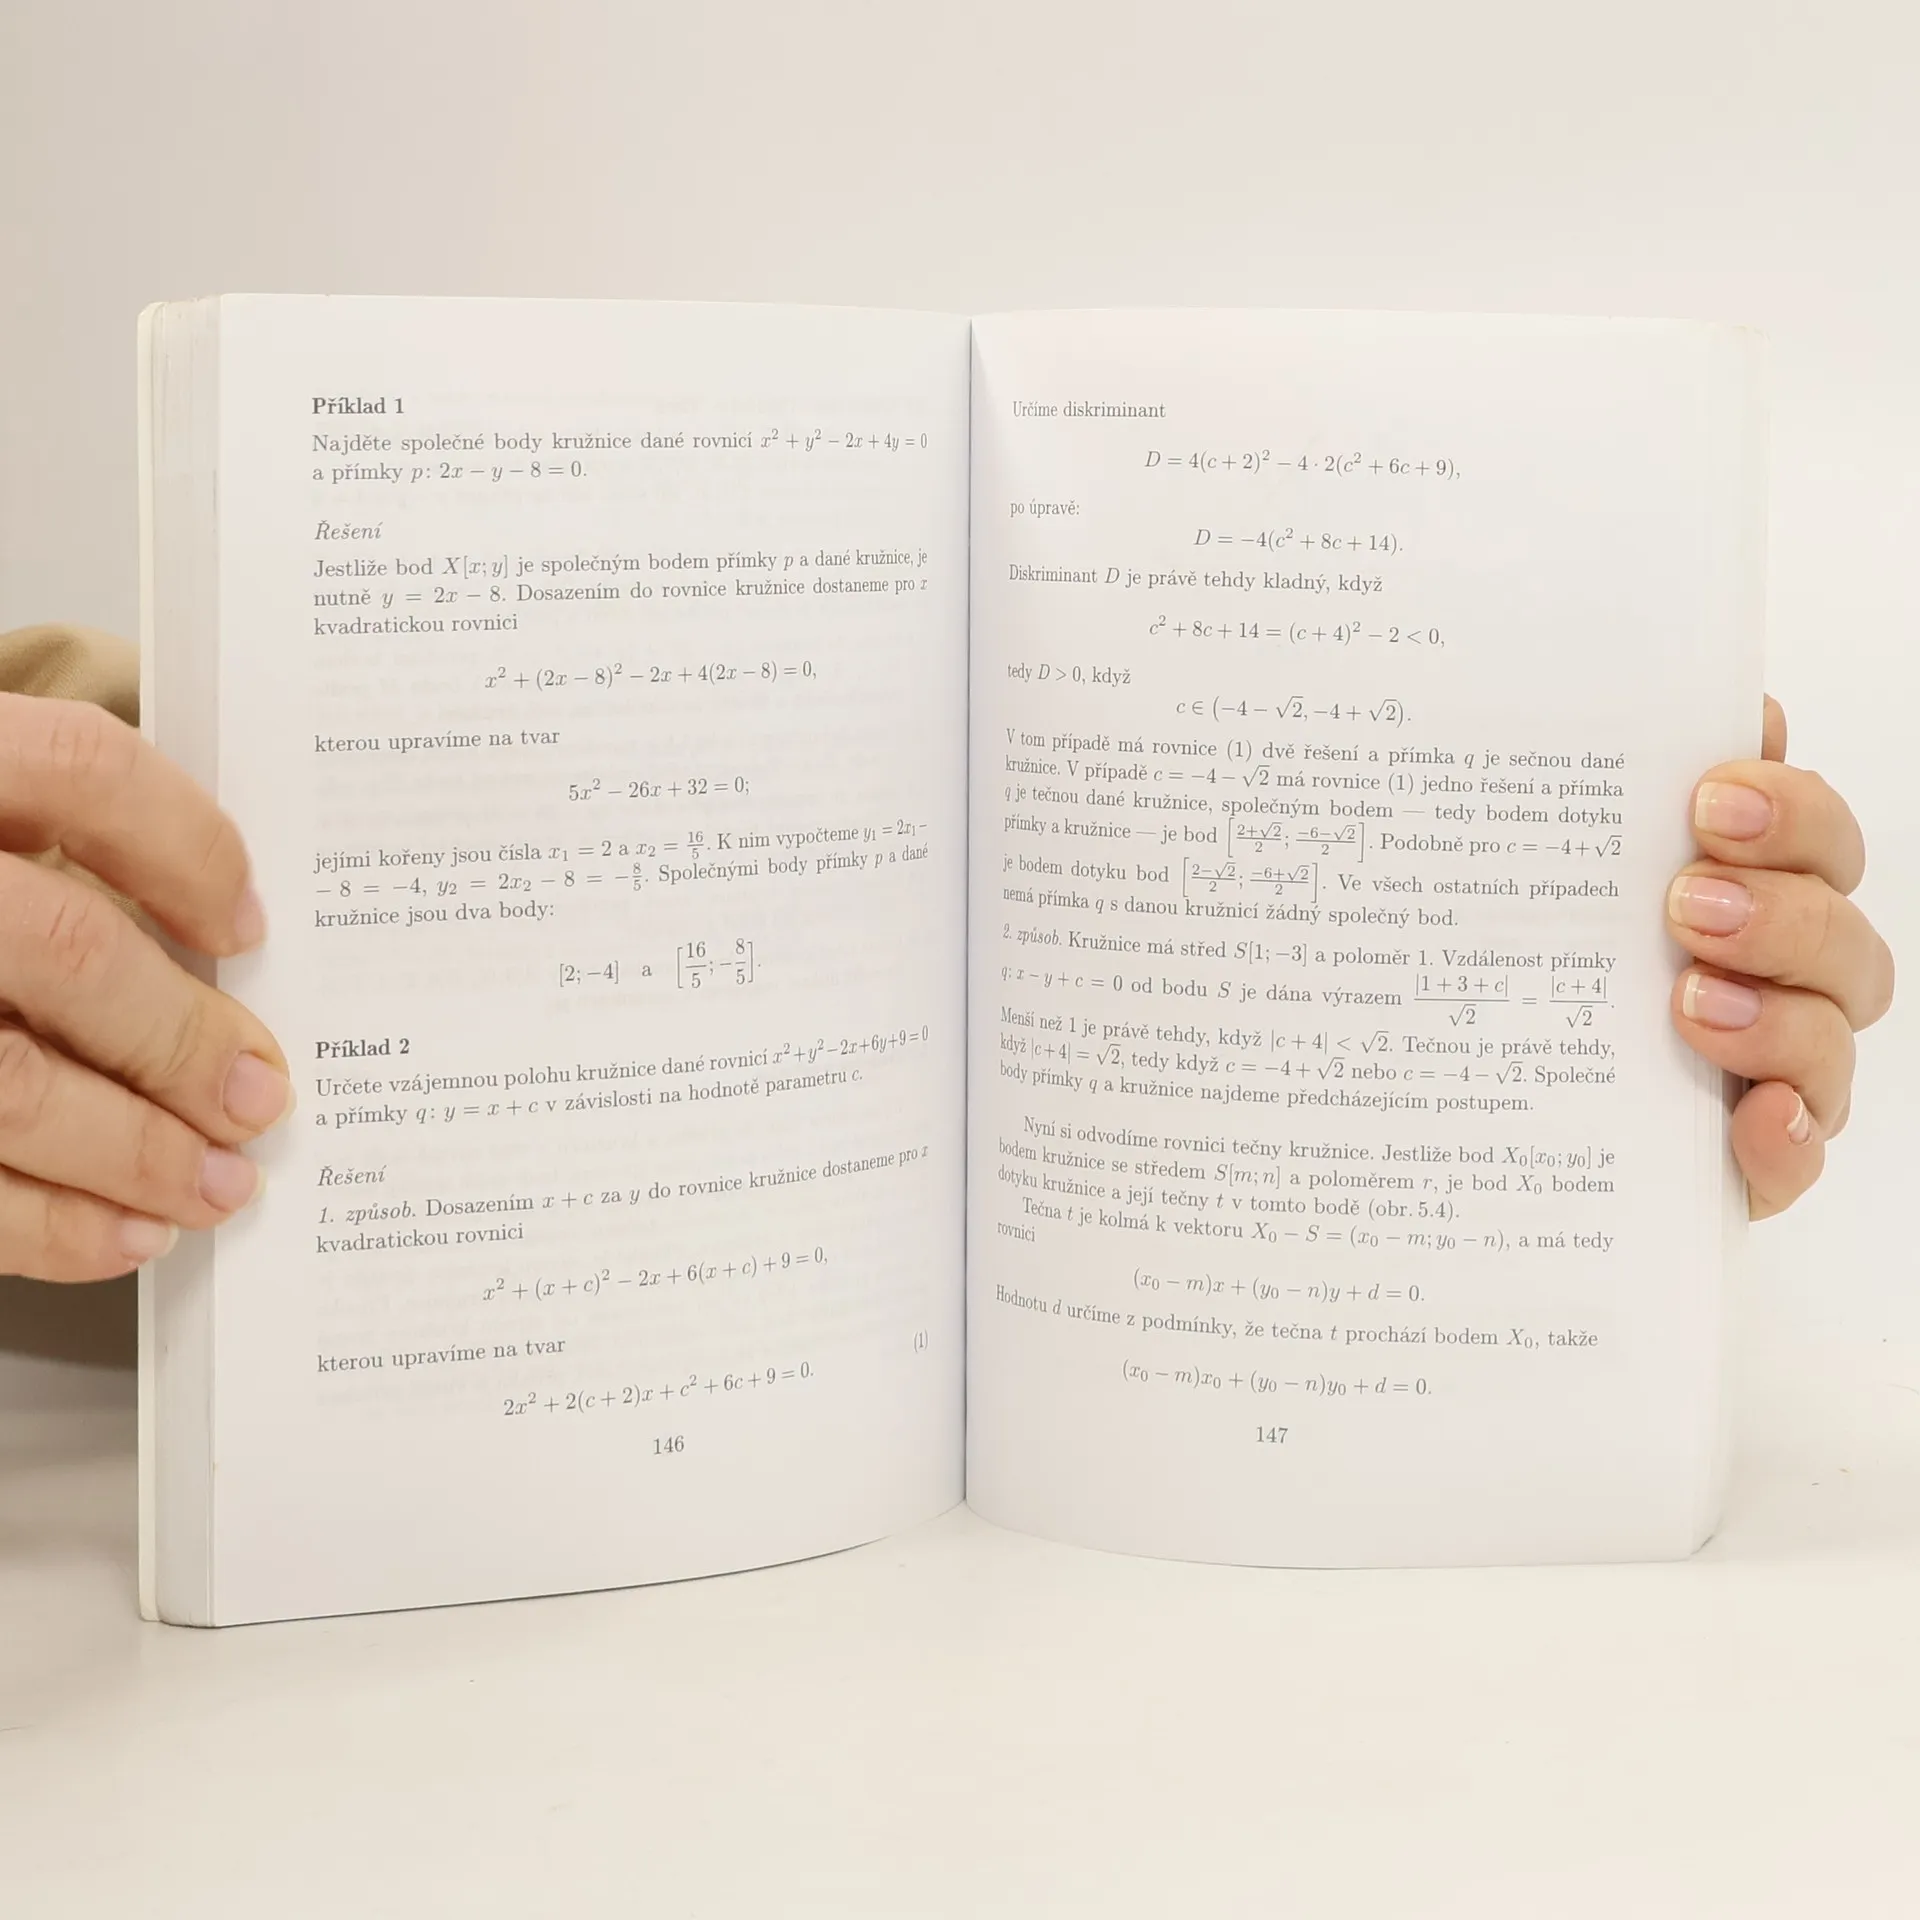 Příklad 1
Najděte společné body kružnice dané rovnicí x² + y² − 2x + 4y = 0
a přímky p: 2x − y − 8 = 0.
Řešení
Jestliže bod X[x; y] je společným bodem přímky p a dané kružnice, je
nutně y = 2x − 8. Dosazením do rovnice kružnice dostaneme pro x
kvadratickou rovnici
x² + (2x − 8)² − 2x + 4(2x − 8) = 0,
kterou upravíme na tvar
5x² − 26x + 32 = 0;
jejími kořeny jsou čísla x₁ = 2 a x₂ = 16/5. K nim vypočteme y₁ = 2x₁ −
− 8 = −4, y₂ = 2x₂ − 8 = −8/5. Společnými body přímky p a dané
kružnice jsou dva body:
[2; −4] a [16/5; −8/5].
Příklad 2
Určete vzájemnou polohu kružnice dané rovnicí x²+y²−2x+6y+9=0
a přímky q: y = x + c v závislosti na hodnotě parametru c.
Řešení
1. způsob. Dosazením x + c za y do rovnice kružnice dostaneme pro x
kvadratickou rovnici
x² + (x + c)² − 2x + 6(x + c) + 9 = 0,
kterou upravíme na tvar
2x² + 2(c + 2)x + c² + 6c + 9 = 0. (1)
146
Určíme diskriminant
D = 4(c + 2)² − 4 · 2(c² + 6c + 9),
po úpravě:
D = −4(c² + 8c + 14).
Diskriminant D je právě tehdy kladný, když
c² + 8c + 14 = (c + 4)² − 2 < 0,
tedy D > 0, když
c ∈ (−4 − √2, −4 + √2).
V tom případě má rovnice (1) dvě řešení a přímka q je sečnou dané
kružnice. V případě c = −4 − √2 má rovnice (1) jedno řešení a přímka
q je tečnou dané kružnice, společným bodem — tedy bodem dotyku
přímky a kružnice — je bod [(2+√2)/2; (−6−√2)/2]. Podobně pro c = −4+√2
je bodem dotyku bod [(2−√2)/2; (−6+√2)/2]. Ve všech ostatních případech
nemá přímka q s danou kružnicí žádný společný bod.
2. způsob. Kružnice má střed S[1; −3] a poloměr 1. Vzdálenost přímky
q: x − y + c = 0 od bodu S je dána výrazem |1 + 3 + c|/√2 = |c + 4|/√2.
Menší než 1 je právě tehdy, když |c + 4| < √2. Tečnou je právě tehdy,
když |c+4| = √2, tedy když c = −4 + √2 nebo c = −4 − √2. Společné
body přímky q a kružnice najdeme předcházejícím postupem.
Nyní si odvodíme rovnici tečny kružnice. Jestliže bod X₀[x₀; y₀] je
bodem kružnice se středem S[m; n] a poloměrem r, je bod X₀ bodem
dotyku kružnice a její tečny t v tomto bodě (obr. 5.4).
Tečna t je kolmá k vektoru X₀ − S = (x₀ − m; y₀ − n), a má tedy
rovnici
(x₀ − m)x + (y₀ − n)y + d = 0.
Hodnotu d určíme z podmínky, že tečna t prochází bodem X₀, takže
(x₀ − m)x₀ + (y₀ − n)y₀ + d = 0.
147